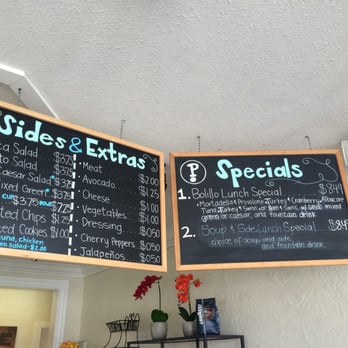 Sides & Extras
Salad $3.75
to Salad $3.75
Caesar Salad $3.75
ixed Greens $3.75
CUP $3.75 BOWL
Chips $1.25
Cookies $1.00
tuna, chicken
salad - $2.00
• Meat $2.00
• Avocado $1.25
• Cheese $1.00
• Vegetables $1.00
• Dressing $0.50
• Cherry Peppers $0.50
• Jalapeños $0.50
P
Specials
1. Bolillo Lunch Special $8.49
• Mortadella & Provolone, Turkey & Cranberry, Albacore
Tuna, Turkey & Swiss or Ham & Swiss w/ small mixed
green or caesar, and fountain drink
2. Soup & Side Lunch Special $8.49
choice of soup and side
and fountain drink